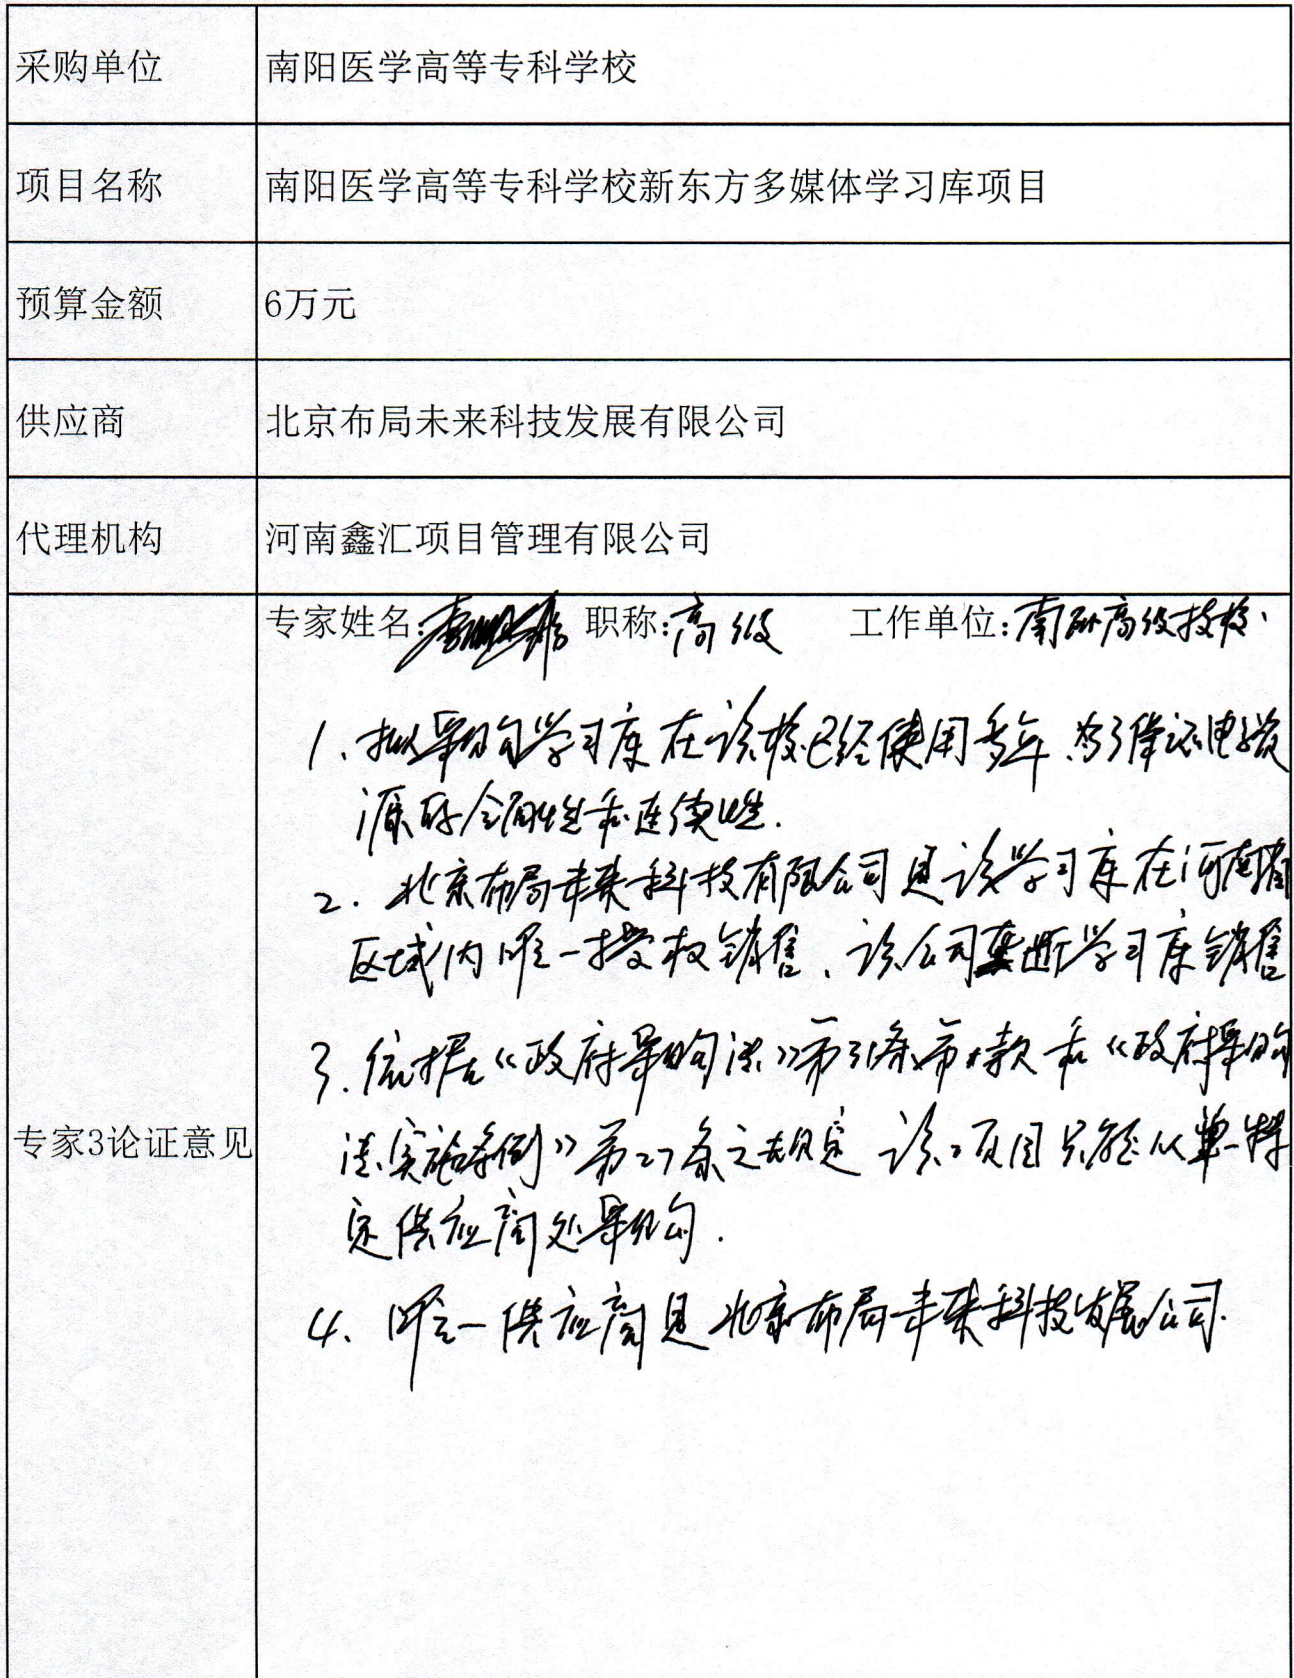 采购单位 南阳医学高等专科学校
项目名称 南阳医学高等专科学校新东方多媒体学习库项目
预算金额 6万元
供应商 北京布局未来科技发展有限公司
代理机构 河南鑫汇项目管理有限公司
专家姓名: 职称:高级 工作单位:南阳高级技校
1、拟采购学习库在该校已经使用多年.为了保证电子资
源的全面性和连续性.
2.北京布局未来科技有限公司是该学习库在河南省
区域内唯一授权销售、该公司垄断学习库销售
3.依据《政府采购法》第31条第 款和《政府采购
法实施条例》第27条之规定 该项目只能从单一特
定供应商处采购.
4、唯一供应商是北京布局未来科技发展公司.
专家3论证意见